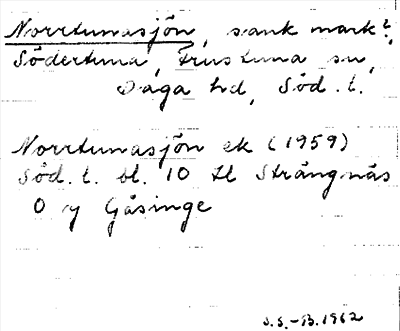 Norrtunasjön, sank mark?,
Södertuna, Frustuna sn,
Daga hd, Söd. l.
Norrtunasjön ek (1959)
Söd. l. bl. 10 Strängnäs
O y Gåsinge
J.S.-B. 1962